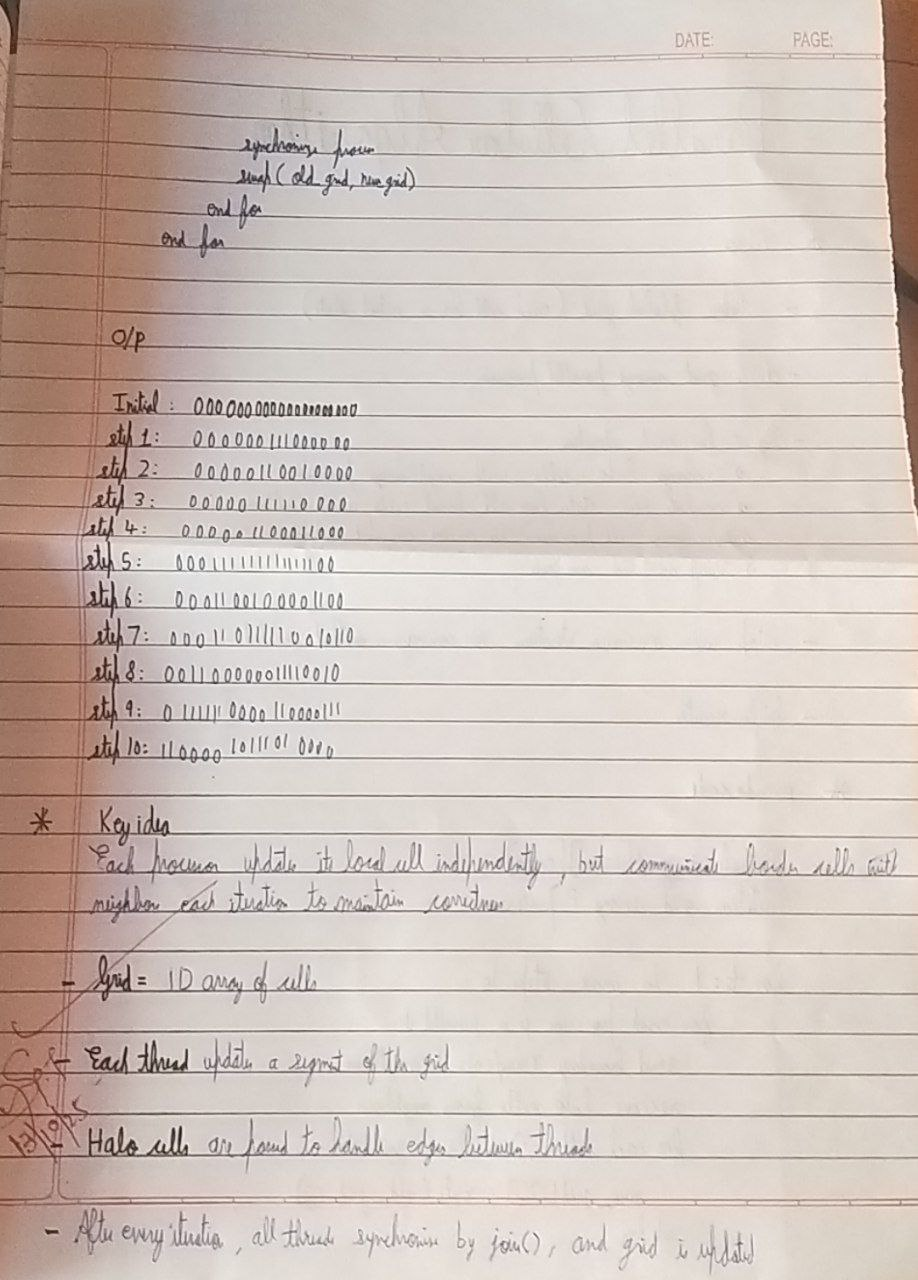 DATE: PAGE:
synchronize process
swap(old_grid, new grid)
end for
end for
O/P
Initial : 00000000000000000000
step 1: 0000001110000 00
step 2: 000001100100000
step 3: 00000 111110 000
step 4: 00000 1100011000
step 5: 0001111111111100
step 6: 0001100100001100
step 7: 00011011111001 0110
step 8: 0011000000111100 10
step 9: 0 111111 0000 110000111
step 10: 110000 10111 01 0000
* Key idea
Each processor update its local cell independently, but communicate border cells with
neighbor each iteration to maintain correctness
- Grid = 1D array of cells
- Each thread update a segment of the grid
- Halo cells are passed to handle edges between threads
- After every iteration, all threads synchronise by join(), and grid is updated